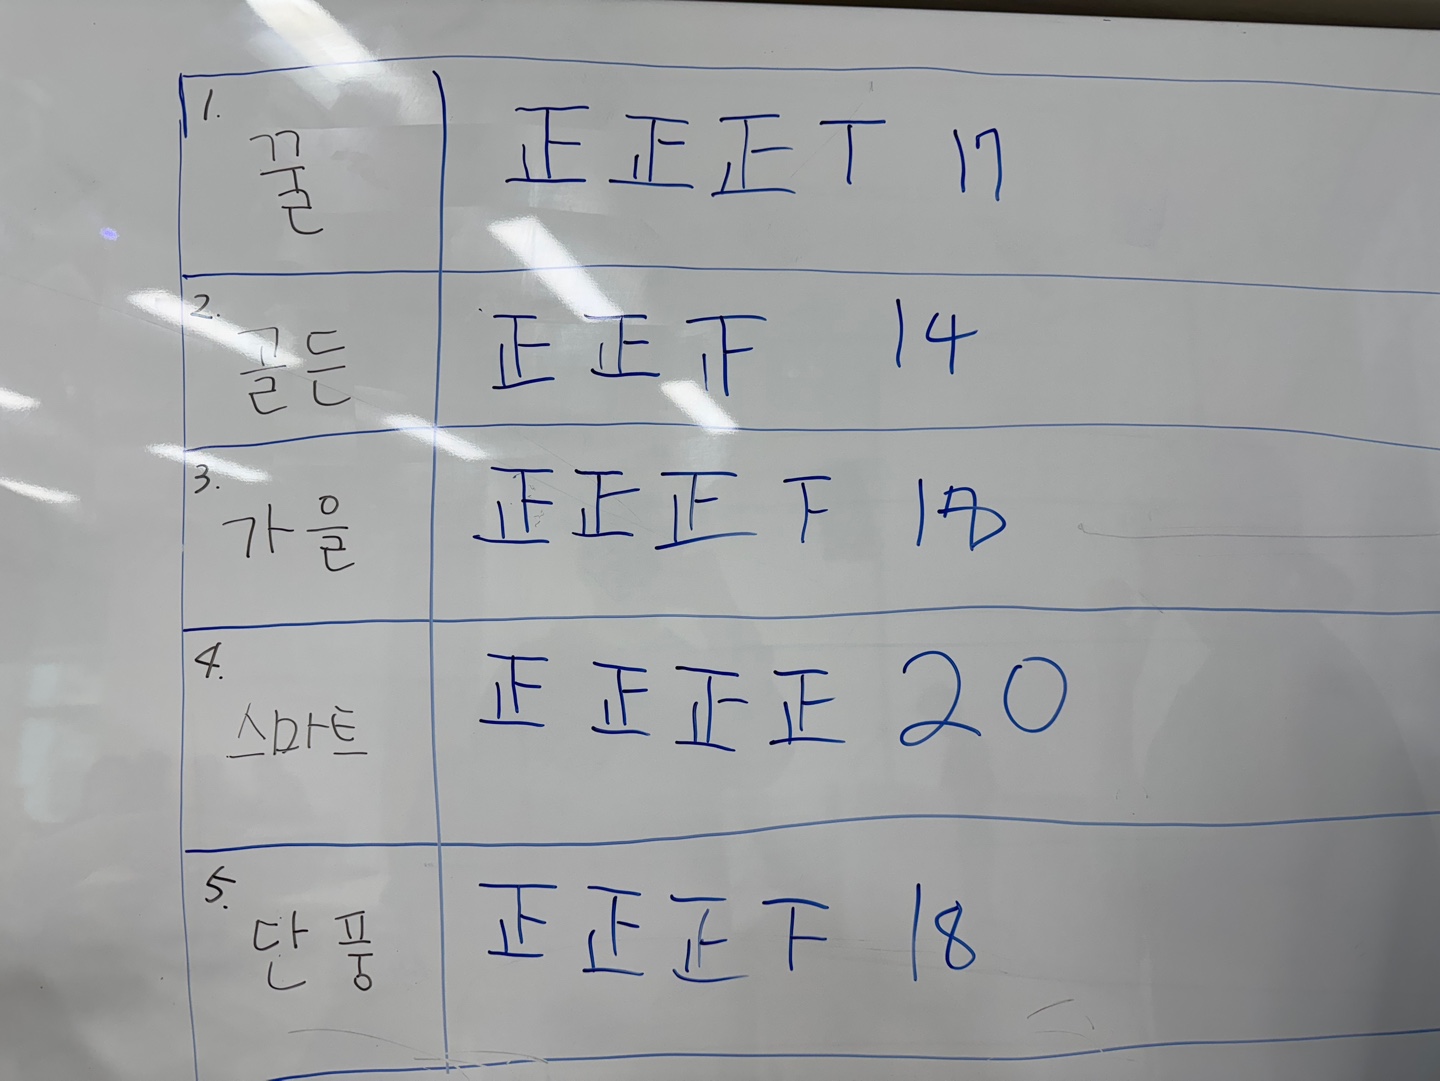 1. 꿀 正正正T 17
2. 골든 正正下 14
3. 가을 正正正F 18
4. 스마트 正正正正 20
5. 단풍 正正正F 18